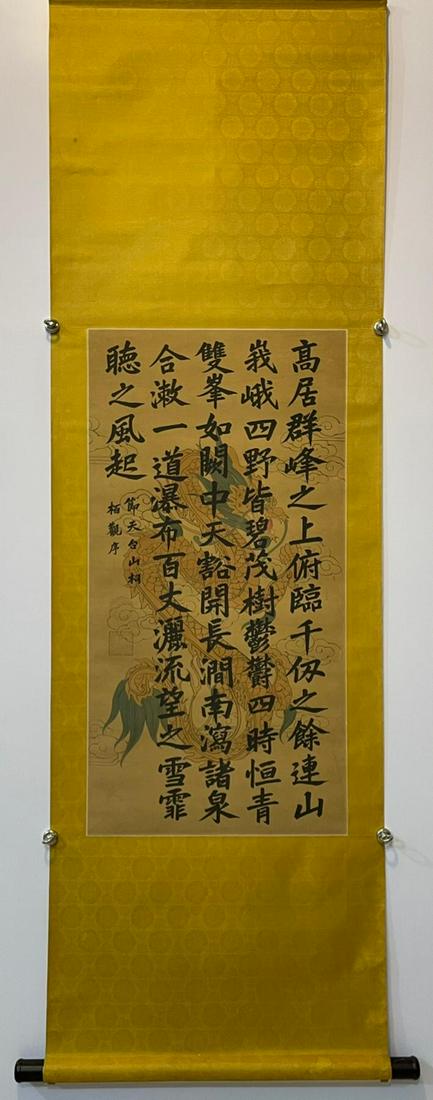 高居群峰之上俯臨千仭之餘連山
峩峨四野皆碧茂樹鬱欝四時恒青
雙峯如闕中天豁開長澗南瀉諸泉
合漱一道瀑布百丈灑流望之雪霏
聽之風起
節天台山桐
栢觀序